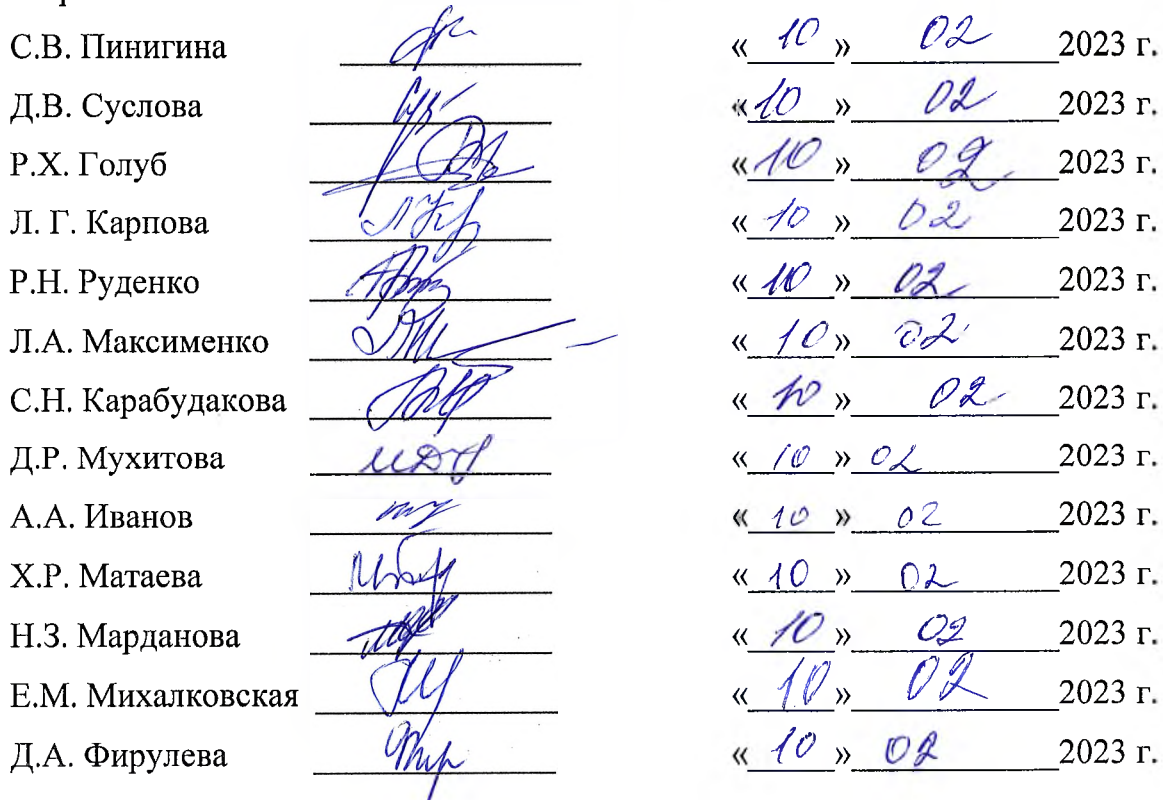 С.В. Пинигина «10» 02 2023 г.
Д.В. Суслова «10» 02 2023 г.
Р.Х. Голуб «10» 02 2023 г.
Л. Г. Карпова «10» 02 2023 г.
Р.Н. Руденко «10» 02 2023 г.
Л.А. Максименко «10» 02 2023 г.
С.Н. Карабудакова «10» 02 2023 г.
Д.Р. Мухитова «10» 02 2023 г.
А.А. Иванов «10» 02 2023 г.
Х.Р. Матаева «10» 02 2023 г.
Н.З. Марданова «10» 02 2023 г.
Е.М. Михалковская «10» 02 2023 г.
Д.А. Фирулева «10» 02 2023 г.